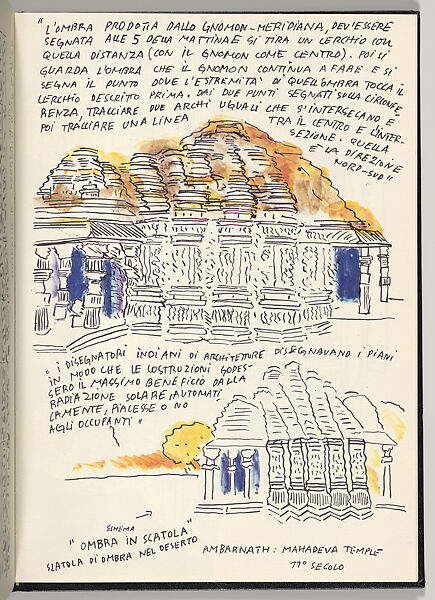 "L'OMBRA PRODOTTA DALLO GNOMON-MERIDIANA, DEV'ESSERE
SEGNATA ALLE 5 DELLA MATTINA E SI TIRA UN CERCHIO CON
QUELLA DISTANZA (CON IL GNOMON COME CENTRO). POI SI
GUARDA L'OMBRA CHE IL GNOMON CONTINUA A FARE E SI
SEGNA IL PUNTO DOVE L'ESTREMITA' DI QUELL'OMBRA TOCCA IL
CERCHIO DESCRITTO PRIMA. DAI DUE PUNTI SEGNATI SULLA CIRCONFE,
RENZA, TRACCIARE DUE ARCHI UGUALI CHE S'INTERSECANO E
POI TRACCIARE UNA LINEA TRA IL CENTRO E L'INTER-
SEZIONE. QUELLA
E' LA DIREZIONE
NORD-SUD"
"I DISEGNATORI INDIANI DI ARCHITETTURE DISEGNAVANO I PIANI
IN MODO CHE LE COSTRUZIONI GODES-
SERO IL MASSIMO BENEFICIO DALLA
RADIAZIONE SOLARE, AUTOMATI
CAMENTE, PIACESSE O NO
AGLI OCCUPANTI"
SCHEMA
"OMBRA IN SCATOLA"
SCATOLA DI OMBRA NEL DESERTO
AMBARNATH: MAHADEVA TEMPLE
11° SECOLO